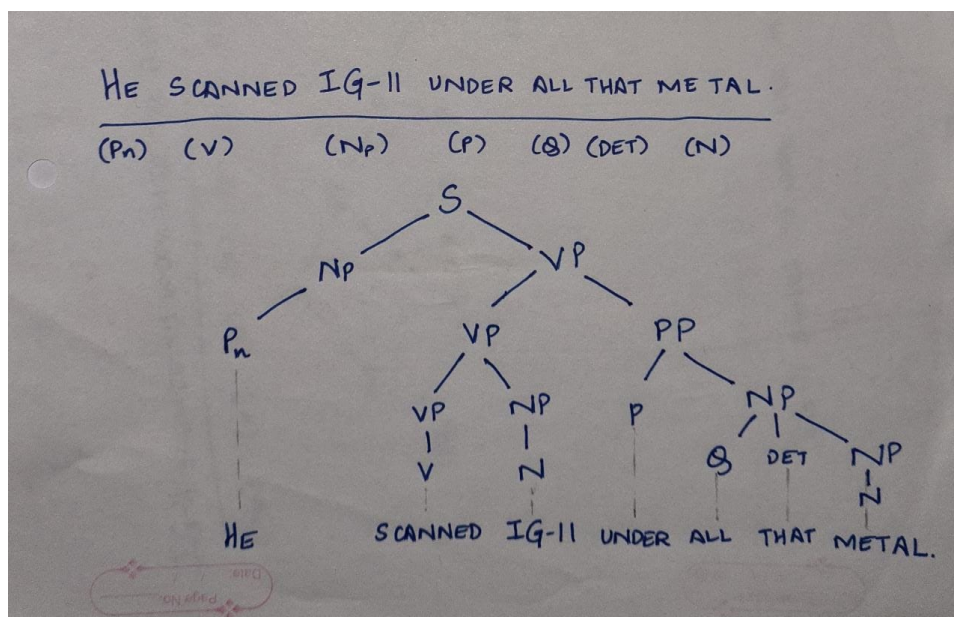 HE SCANNED IG-11 UNDER ALL THAT METAL.
(Pn) (V) (Np) (P) (Q) (DET) (N)
S
NP VP
Pn VP PP
VP NP P NP
V N Q DET NP
N
HE SCANNED IG-11 UNDER ALL THAT METAL.
Date
Page No.